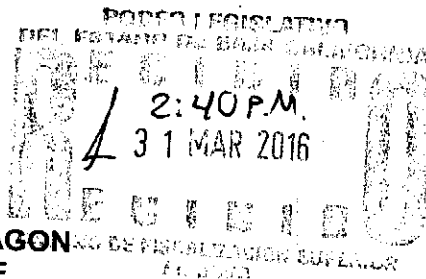 PODER LEGISLATIVO
DEL ESTADO DE BAJA CALIFORNIA
RECIBIDO
2:40 P.M.
31 MAR 2016
RECIBIDO
AGON
DE FISCALIZACION SUPERIOR